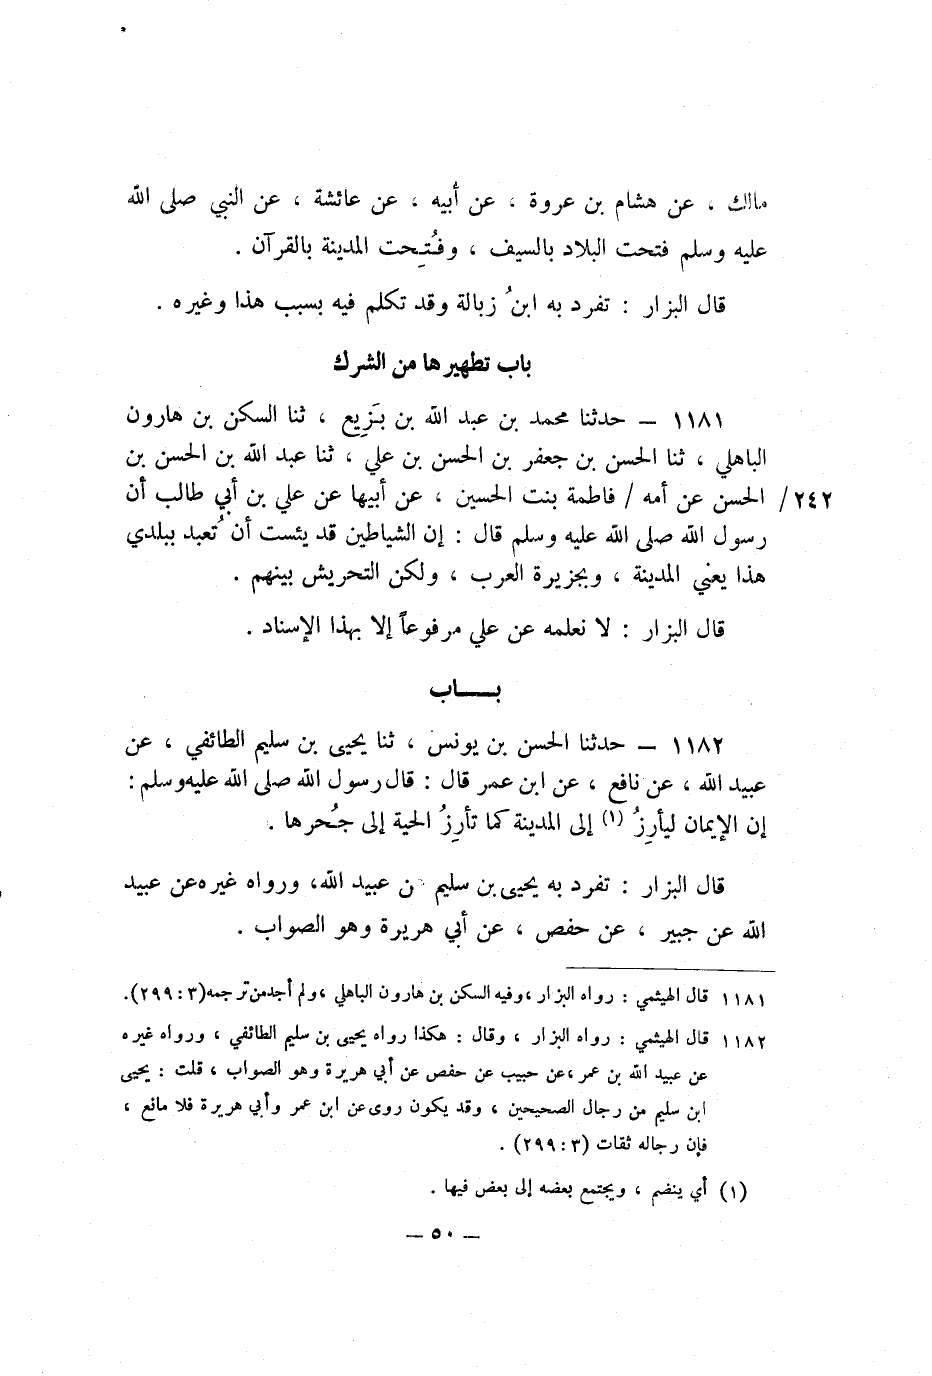 مالك ، عن هشام بن عروة ، عن أبيه ، عن عائشة ، عن النبي صلى الله
عليه وسلم فتحت البلاد بالسيف ، وفُتِحت المدينة بالقرآن .
قال البزار : تفرد به ابنُ زبالة وقد تكلم فيه بسبب هذا وغيره .
باب تطهيرها من الشرك
١١٨١ – حدثنا محمد بن عبد الله بن بَزِيع ، ثنا السكن بن هارون
الباهلي ، ثنا الحسن بن جعفر بن الحسن بن علي ، ثنا عبد الله بن الحسن بن
٢٤٢/ الحسن عن أمه / فاطمة بنت الحسين ، عن أبيها عن علي بن أبي طالب أن
رسول الله صلى الله عليه وسلم قال : إن الشياطين قد يئست أن تُعبد ببلدي
هذا يعني المدينة ، وبجزيرة العرب ، ولكن التحريش بينهم .
قال البزار : لا نعلمه عن علي مرفوعاً إلا بهذا الإسناد .
بـــاب
١١٨٢ – حدثنا الحسن بن يونس ، ثنا يحيى بن سليم الطائفي ، عن
عبيد الله ، عن نافع ، عن ابن عمر قال : قال رسول الله صلى الله عليه وسلم :
إن الإيمان ليأرِزُ (١) إلى المدينة كما تأرِزُ الحية إلى جُحرها .
قال البزار : تفرد به يحيى بن سليم عن عبيد الله، ورواه غيره عن عبيد
الله عن جبير ، عن حفص ، عن أبي هريرة وهو الصواب .
١١٨١ قال الهيثمي : رواه البزار ، وفيه السكن بن هارون الباهلي ، ولم أجد من ترجمه (٣ : ٢٩٩).
١١٨٢ قال الهيثمي : رواه البزار ، وقال : هكذا رواه يحيى بن سليم الطائفي ، ورواه غيره
عن عبيد الله بن عمر ، عن حبيب عن حفص عن أبي هريرة وهو الصواب ، قلت : يحيى
ابن سليم من رجال الصحيحين ، وقد يكون روى عن ابن عمر وأبي هريرة فلا مانع ،
فإن رجاله ثقات (٣ : ٢٩٩) .
(١) أي ينضم ، ويجتمع بعضه إلى بعض فيها .
– ٥٠ –